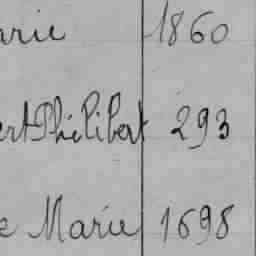 arie 1860
ert Philibert 293
e Marie 1698